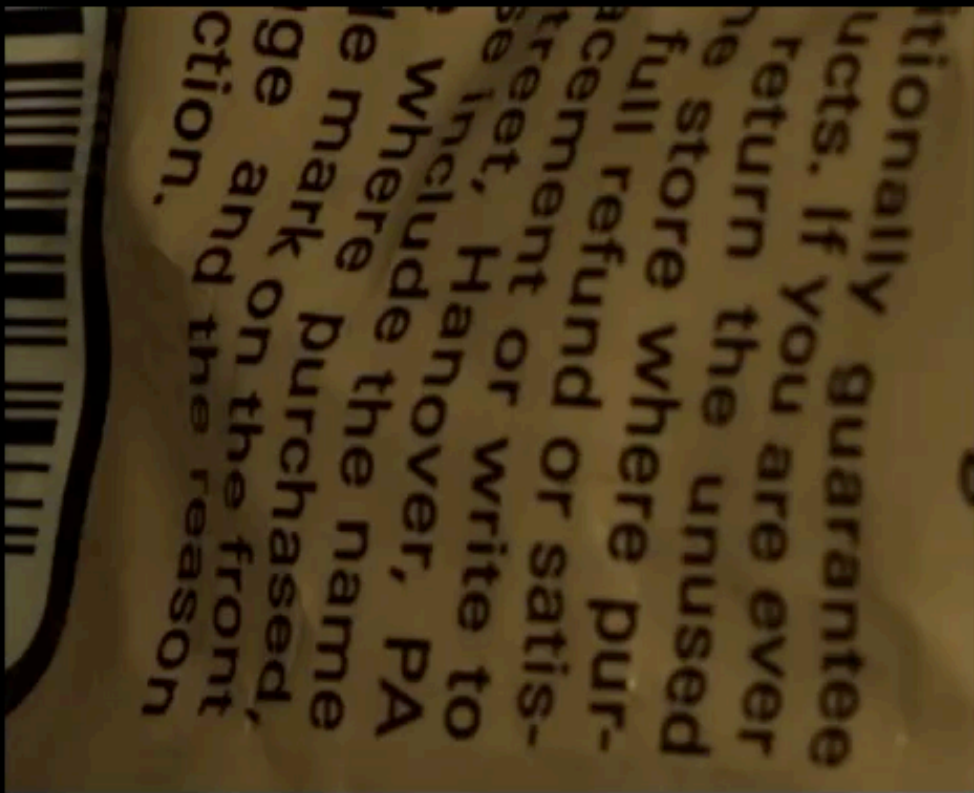 itionally guarantee
ucts. If you are ever
return the unused
he store where pur-
full refund or satis-
acement or write to
treet, Hanover, PA
se include the name
where purchased,
le mark on the front
ge and the reason
ction.